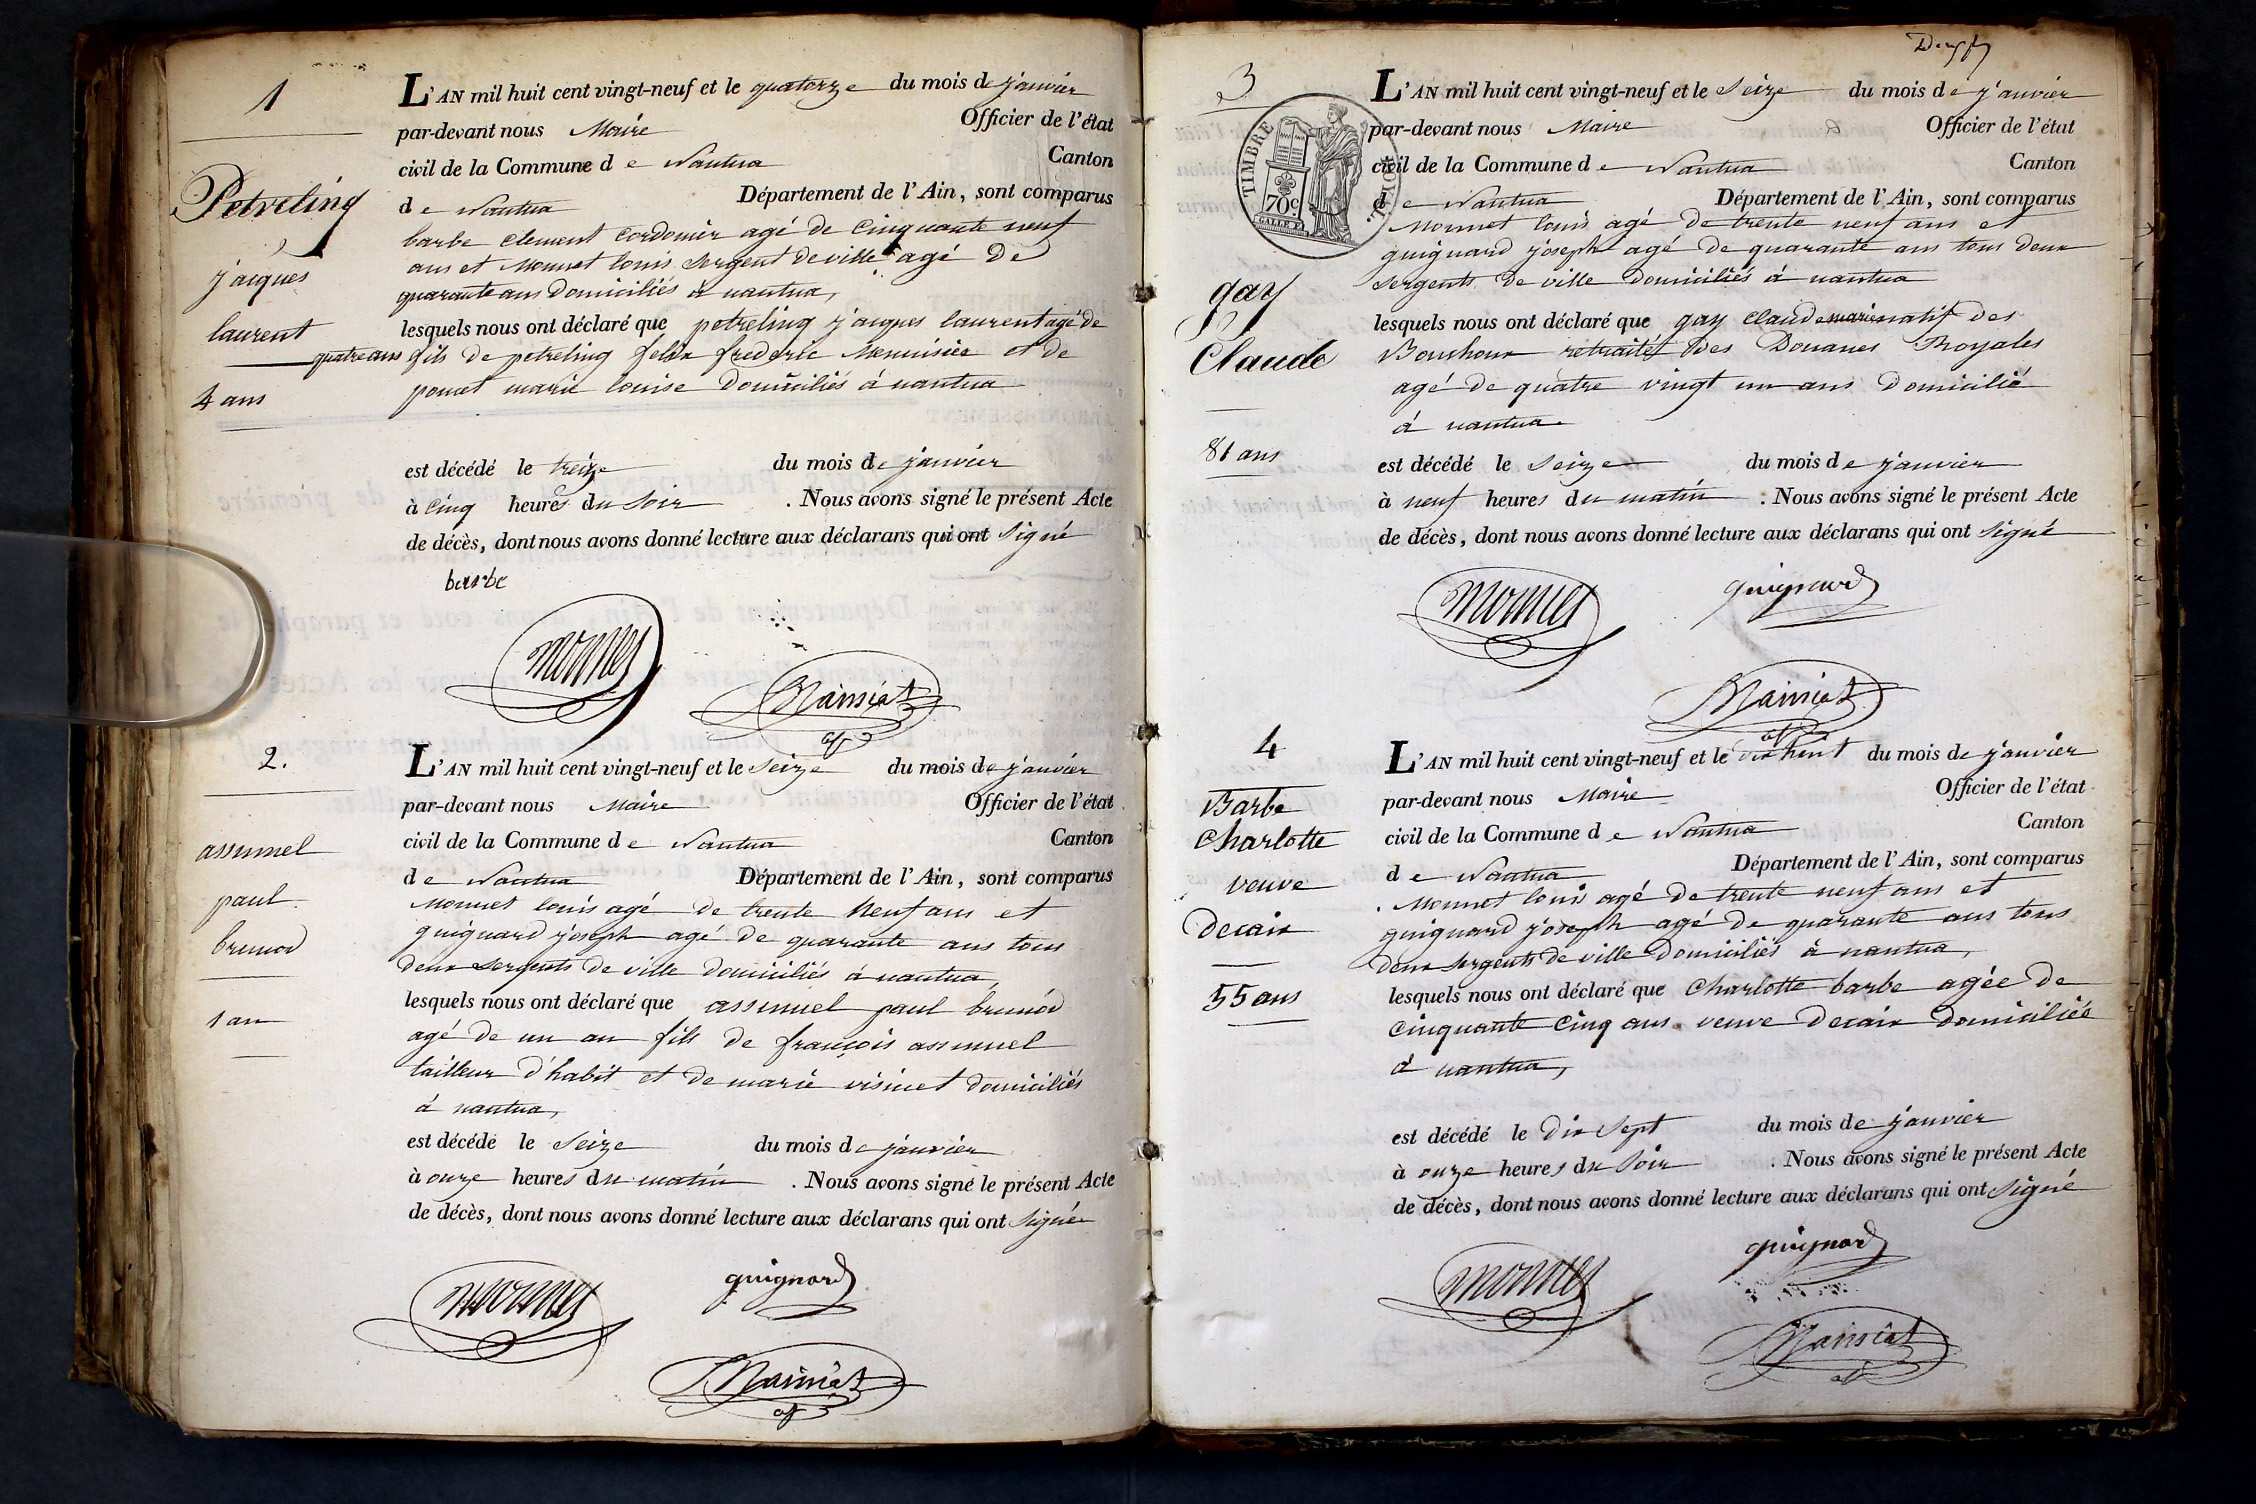 1
Petreling
jacques
laurent
4 ans
L'AN mil huit cent vingt-neuf et le quatorze du mois de janvier
par-devant nous Maire Officier de l'état
civil de la Commune de Nantua Canton
de Nantua Département de l'Ain, sont comparus
barbe clement cordonier agé de cinquante neuf
ans et Monnet louis sergent de ville agé De
quarante ans Domiciliés à nantua,
lesquels nous ont déclaré que petreling jacques laurent agé de
quatre ans fils de petreling felix frederic Menuisier et de
poncet marie louise Domiciliés à nantua
est décédé le treize du mois de janvier
à Cinq heures du Soir . Nous avons signé le présent Acte
de décès, dont nous avons donné lecture aux déclarans qui ont Signé
barbe
monnet
Mainiat
2.
assumel
paul
brunod
1 an
L'AN mil huit cent vingt-neuf et le Seize du mois de janvier
par-devant nous Maire Officier de l'état
civil de la Commune de Nantua Canton
de Nantua Département de l'Ain, sont comparus
Monnet louis agé de trente neuf ans et
guignard joseph agé de quarante ans tous
deux sergents de ville domiciliés à nantua,
lesquels nous ont déclaré que assumel paul brunod
agé de un an fils de françois assumel
tailleur d'habit et de marie visinet domiciliés
à nantua,
est décédé le Seize du mois de janvier
à onze heures du matin . Nous avons signé le présent Acte
de décès, dont nous avons donné lecture aux déclarans qui ont Signé
monnet
guignard
Mainiat
3
TIMBRE ROYAL
70c
gay
Claude
81 ans
L'AN mil huit cent vingt-neuf et le Seize du mois de janvier
par-devant nous Maire Officier de l'état
civil de la Commune de Nantua Canton
de Nantua Département de l'Ain, sont comparus
Monnet louis agé De trente neuf ans et
guignard joseph agé De quarante ans tous deux
sergents De ville domiciliés à nantua
lesquels nous ont déclaré que gay claude marie natif des
Bouchoux retraité Des Douanes Royales
agé de quatre vingt un ans Domicilié
à nantua
est décédé le Seize du mois de janvier
à neuf heures du matin . Nous avons signé le présent Acte
de décès, dont nous avons donné lecture aux déclarans qui ont Signé
monnet
guignard
Mainiat
4
Barbe
Charlotte
veuve
Decaix
55 ans
L'AN mil huit cent vingt-neuf et le dix huit du mois de janvier
par-devant nous Maire Officier de l'état
civil de la Commune de Nantua Canton
de Nantua Département de l'Ain, sont comparus
Monnet louis agé De trente neuf ans et
guignard joseph agé De quarante ans tous
deux sergents de ville Domiciliés à nantua,
lesquels nous ont déclaré que Charlotte barbe agée De
cinquante cinq ans veuve Decaix domiciliés
à nantua,
est décédé le Dix Sept du mois de janvier
à onze heures du Soir . Nous avons signé le présent Acte
de décès, dont nous avons donné lecture aux déclarans qui ont Signé
monnet
guignard
Mainiat